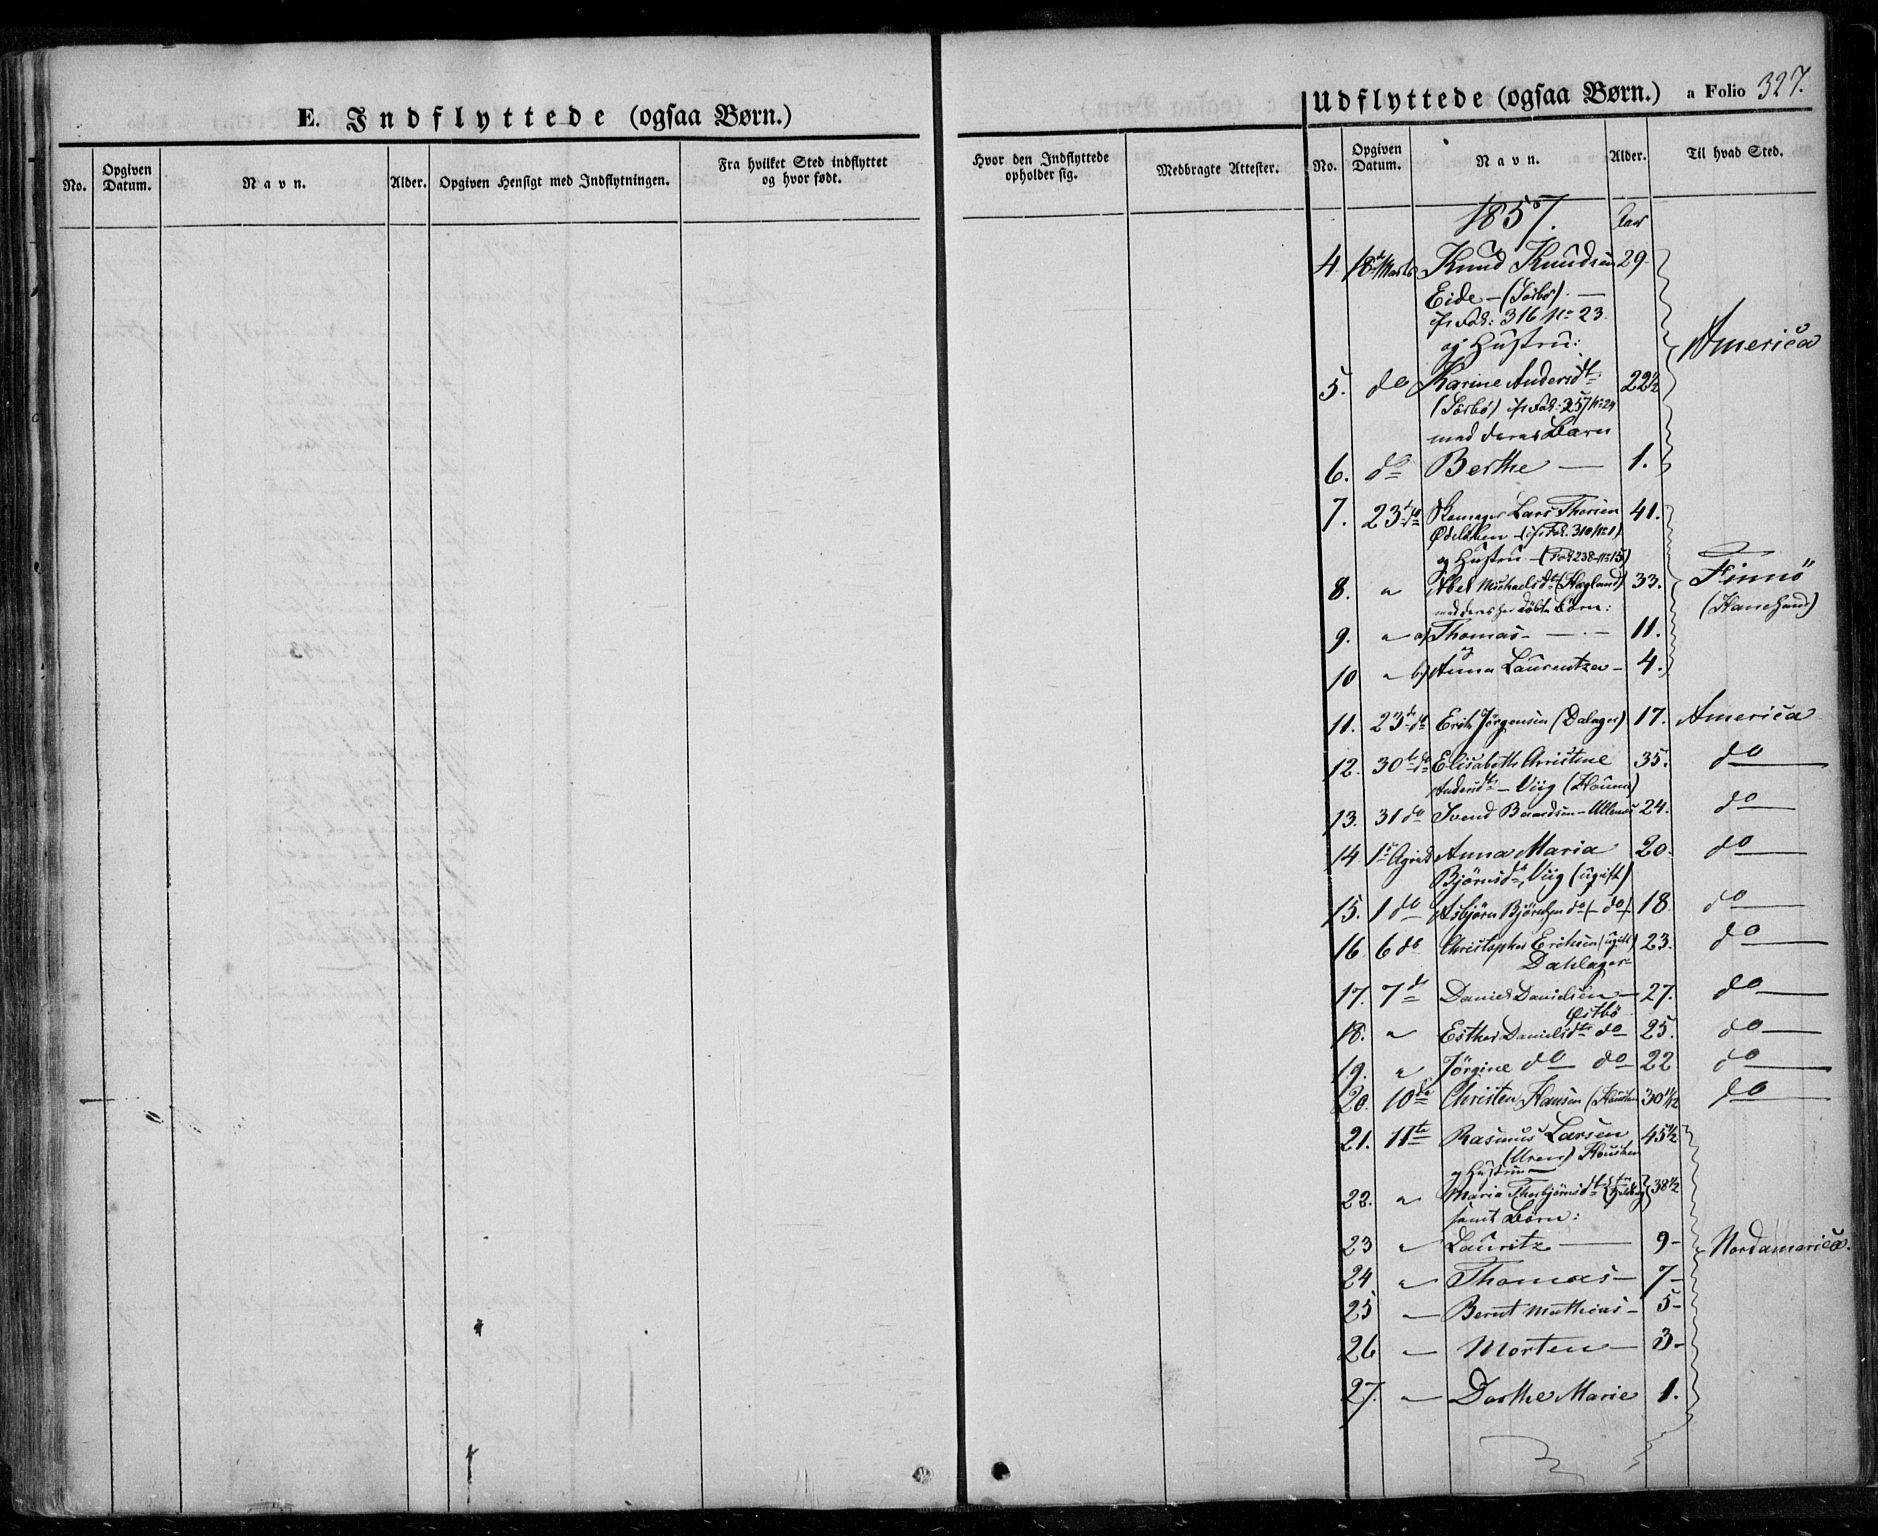 E. Indflyttede (ogsaa Børn.)
No.
Opgiven Datum.
Navn.
Alder.
Opgiven Hensigt med Indflytningen.
Fra hvilket Sted indflyttet og hvor født.
Hvor den Indflyttede opholder sig.
Medbragte Attester.
Udflyttede (ogsaa Børn.) a Folio 327.
No.
Opgiven Datum.
Navn.
Alder.
Til hvad Sted.
1857. Aar
4. 18de Marts Knud Knudsen 29
Eide - (Sörbö). —
Fol: 316 No 23.
og Hustru:
America
5. do Karine Andersdt 22½
(Sörbö) Fol: 257 No 24
med deres Barn
6. do Berthe — 1.
7. 23 do Lars Thorsen 41.
(Fol. 310 No 1)
og Hustru - (Fol 238 No 15)
8. " Abel Michaelsdt (Hagland) 33.
Finnö
med deres her döbte Börn:
(Hanehaug)
9. " a) Thomas — 11.
og
10 " b) Anna Laurentza — 4.
11. 23 do Erik Jörgensen (Dalager) 17. America
12. 30te do Elisabeth Christine 35. do
Andersdt - Viig
13. 31 do Svend Baardsen - Ullenæs 24. do
14 1ste April Anna Maria 20. do
Björnsdt, Viig (ugift)
15. 1 do Asbjörn Björnsen do (- do) 18 do
16 6 do Christopher Eriksen (ugift) 23. do
Dahlager
17. 7 do Daniel Danielsen — 27. do
Östbö
18. " Esther Danielsdt do 25. do
19. " Jörgine do do 22 do
20. 10 do Christen Hansen (Housken 30 11/12 do
21. 11te Rasmus Larsen 45½
(Uren) Housken
og Hustru
22. " Maria Thorbjörnsdt 38½
samt Börn:
23 " Lauritz — 9 - Nordamerica.
24 " Thomas — 7 -
25 — Bernt Mathias - 5 -
26 — Morten — 3 -
27. " Dorthe Marie 1.